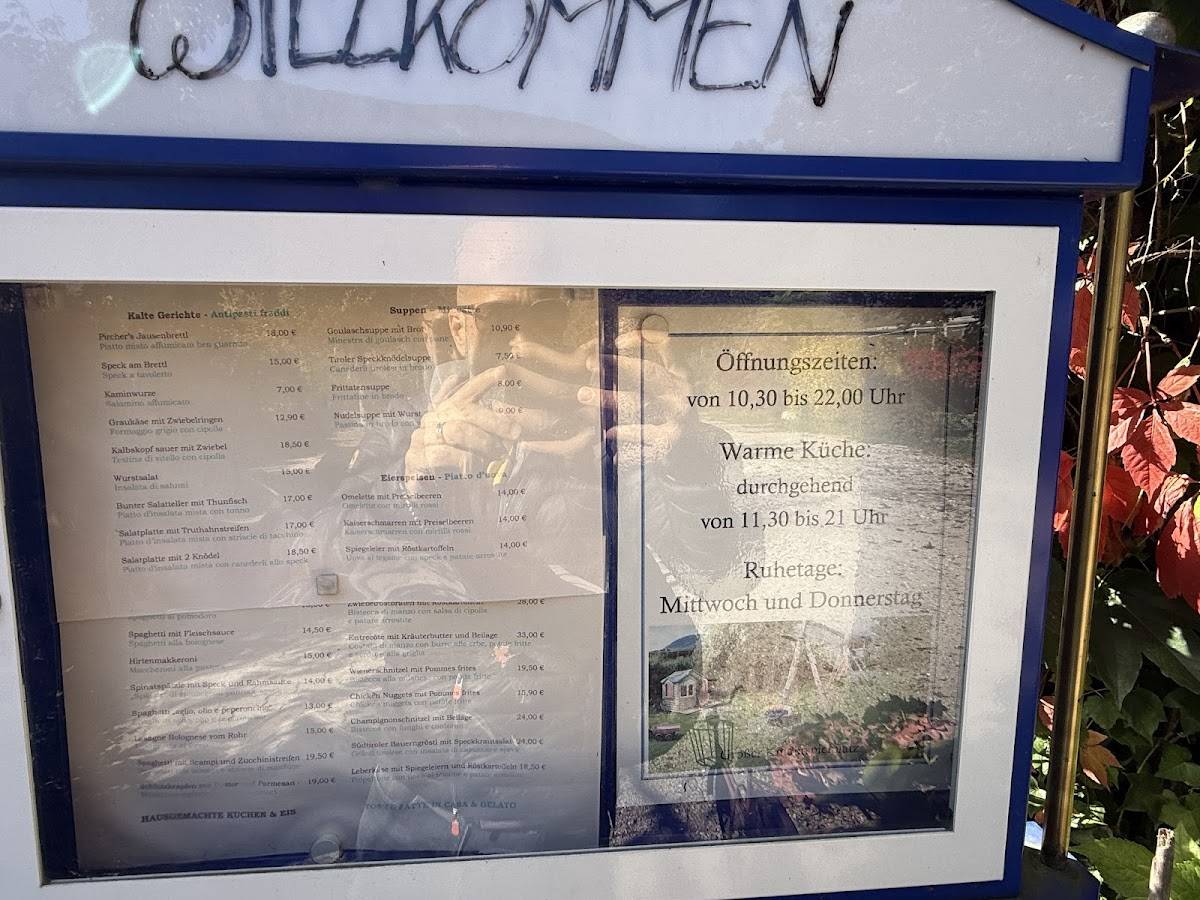 WILLKOMMEN
Kalte Gerichte - Antipasti freddi
Pircher's Jausenbrettl 18,00 €
Piatto misto affumicato ben guarnito
Speck am Brettl 15,00 €
Speck a tavoletto
Kaminwurze 7,00 €
Salamino affumicato
Graukäse mit Zwiebelringen 12,90 €
Formaggio grigio con cipolla
Kalbskopf sauer mit Zwiebel 18,50 €
Testina di vitello con cipolla
Wurstsalat 15,00 €
Insalata di salumi
Bunter Salatteller mit Thunfisch 17,00 €
Piatto d'insalata mista con tonno
Salatplatte mit Truthahnstreifen 17,00 €
Piatto d'insalata mista con striscie di tacchino
Salatplatte mit 2 Knödel 18,50 €
Piatto d'insalata mista con canederli allo speck
Spaghetti al pomodoro
Spaghetti mit Fleischsauce 14,50 €
Spaghetti alla bolognese
Hirtenmakkeroni 15,00 €
Maccheroni alla
Spinatspätzle mit Speck und Rahmsauce 14,00 €
Spaghetti „aglio, olio e peperoncino" 13,00 €
Lasagne Bolognese vom Rohr 15,00 €
Spaghetti mit Scampi und Zucchinistreifen 19,50 €
Schlutzkrapfen mit und Parmesan 19,00 €
HAUSGEMACHTE KUCHEN & EIS
Suppen -
Goulaschsuppe mit Brot 10,90 €
Minestra di goulasch con pane
Tiroler Speckknödelsuppe 7,50 €
Canederli tirolesi in brodo
Frittatensuppe 8,00 €
Frittatine in brodo
Nudelsuppe mit Wurst
Pastina in brodo con
Eierspeisen - Piatto d'uova
Omelette mit Preiselbeeren 14,00 €
Omelette con mirtilli rossi
Kaiserschmarren mit Preiselbeeren 14,00 €
Kaiserschmarren con mirtilli rossi
Spiegeleier mit Röstkartoffeln 14,00 €
Uova al tegame con speck e patate arrostite
Zwiebelrostbraten mit 28,00 €
Bistecca di manzo con salsa di cipolla
e patate arrostite
Entrecôte mit Kräuterbutter und Beilage 33,00 €
Costata di manzo con burro alle erbe, patate fritte
alla griglia
Wienerschnitzel mit Pommes frites 19,50 €
Chicken Nuggets mit Pommes frites 15,90 €
Chicken nuggets con patate fritte
Champignonschnitzel mit Beilage 24,00 €
Bistecca con funghi e contorno
Südtiroler Bauerngröstl mit Speckkrautsalat 24,00 €
Leberkäse mit Spiegeleiern und Röstkartoffeln 18,50 €
TORTE FATTE IN CASA & GELATO
Öffnungszeiten:
von 10,30 bis 22,00 Uhr
Warme Küche:
durchgehend
von 11,30 bis 21 Uhr
Ruhetage:
Mittwoch und Donnerstag